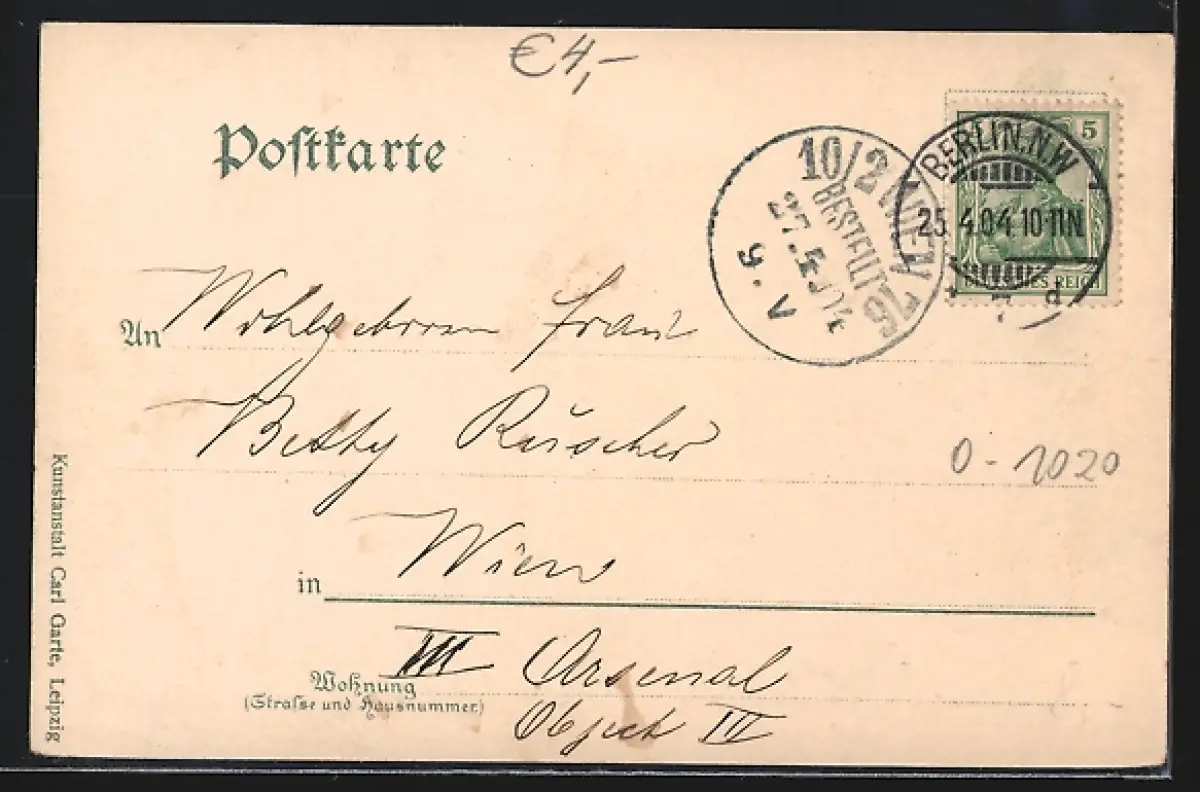 €4,-
Postkarte
5
BERLIN.N.W
25.4.04.10-11N.
d
DEUTSCHES REICH
10/2 WIEN 76
BESTELLT
27.4.04
V.6
An Wohlgeboren Frau
Betty Rüscher
0-1020
in Wien
III Arsenal
Wohnung
(Strasse und Hausnummer)
Objeck IV
Kunstanstalt Carl Garte, Leipzig